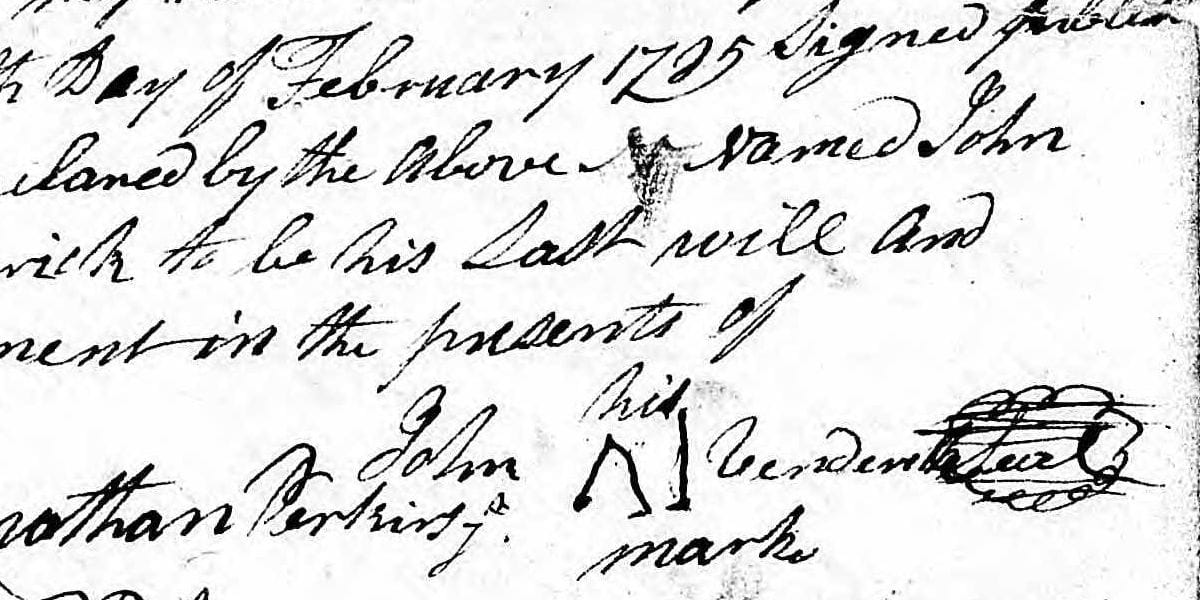 th Day of February 1795 Signed publish
clared by the Above Named John
rick to be his Last will and
ment in the presents of
his
John Venderick Seal
nathan Perkins Jr.
mark